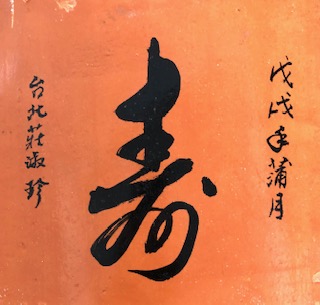 戊戌年蒲月
寿
台北莊淑珍